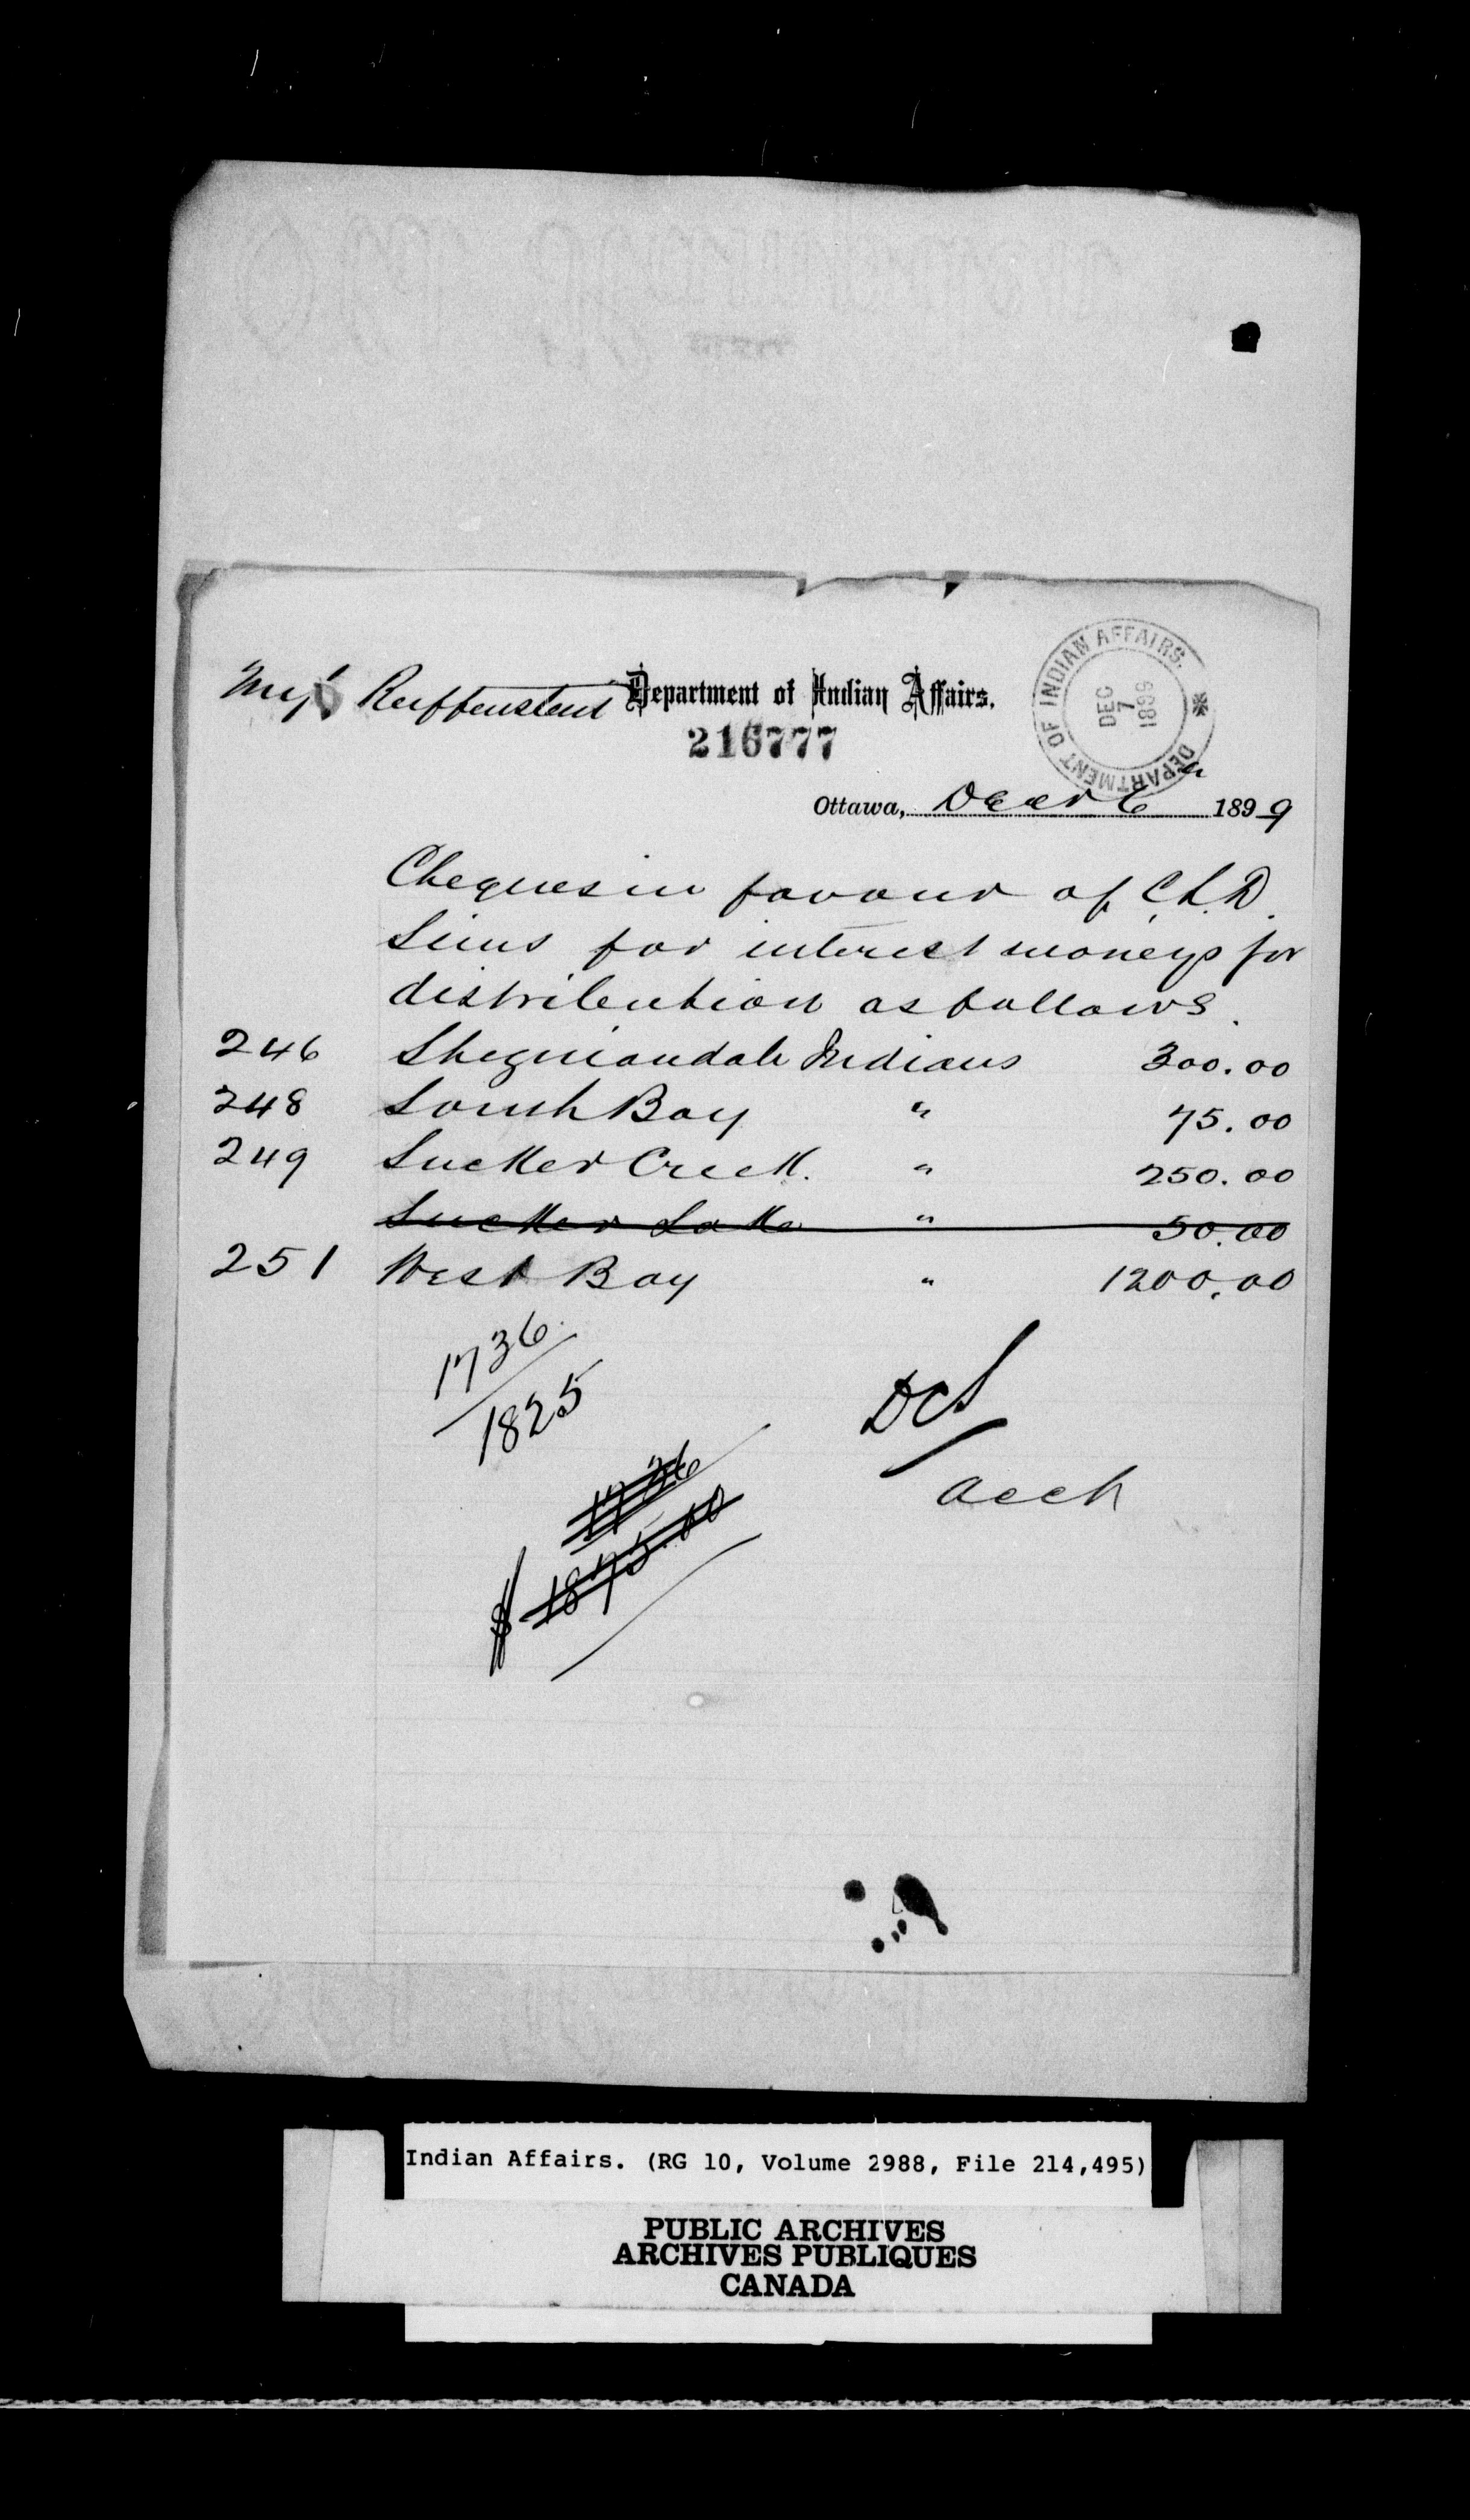 Reiffenstein Department of Indian Affairs.
216777
DEPARTMENT OF INDIAN AFFAIRS.
DEC
7
1899
Ottawa, Decr 6 1899
Cheques in favour of C.L.D.
Sims for interest moneys for
distribution as follows.
246 Sheguiandah Indians 300.00
248 South Bay " 75.00
249 Sucker Creek. " 250.00
Sucker Lake " 50.00
251 West Bay " 1200.00
1736
1825
DCS
Acct
1736
$1875.00
Indian Affairs. (RG 10, Volume 2988, File 214,495)
PUBLIC ARCHIVES
ARCHIVES PUBLIQUES
CANADA